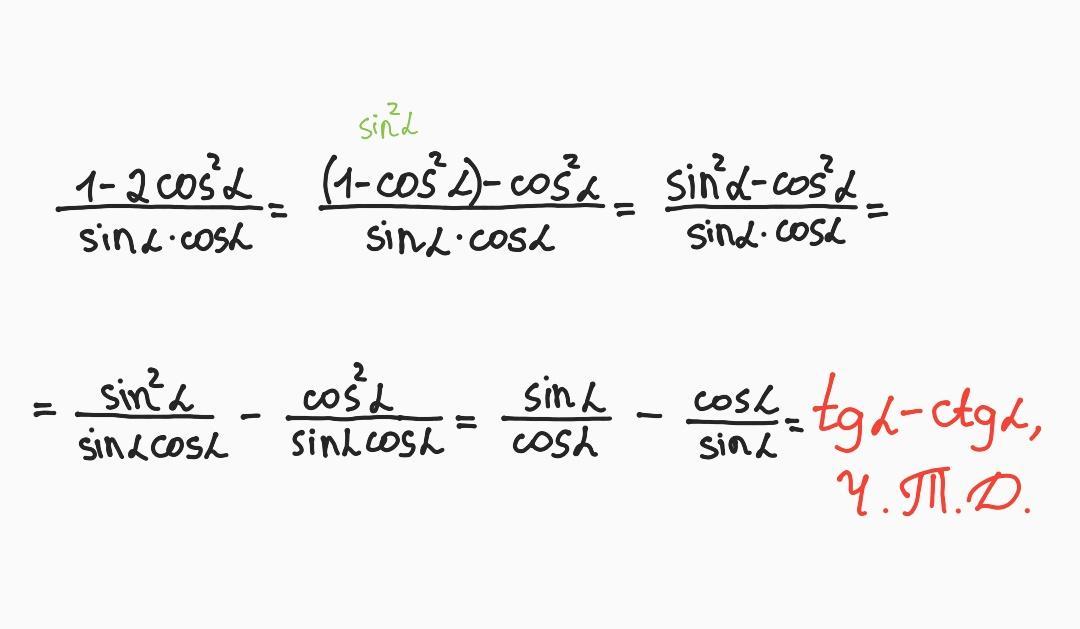 sin²α
(1-2cos²α)/(sinα·cosα) = ((1-cos²α)-cos²α)/(sinα·cosα) = (sin²α-cos²α)/(sinα·cosα) =
= (sin²α)/(sinαcosα) - (cos²α)/(sinαcosα) = (sinα)/(cosα) - (cosα)/(sinα) = tgα-ctgα,
Ч.Т.Д.